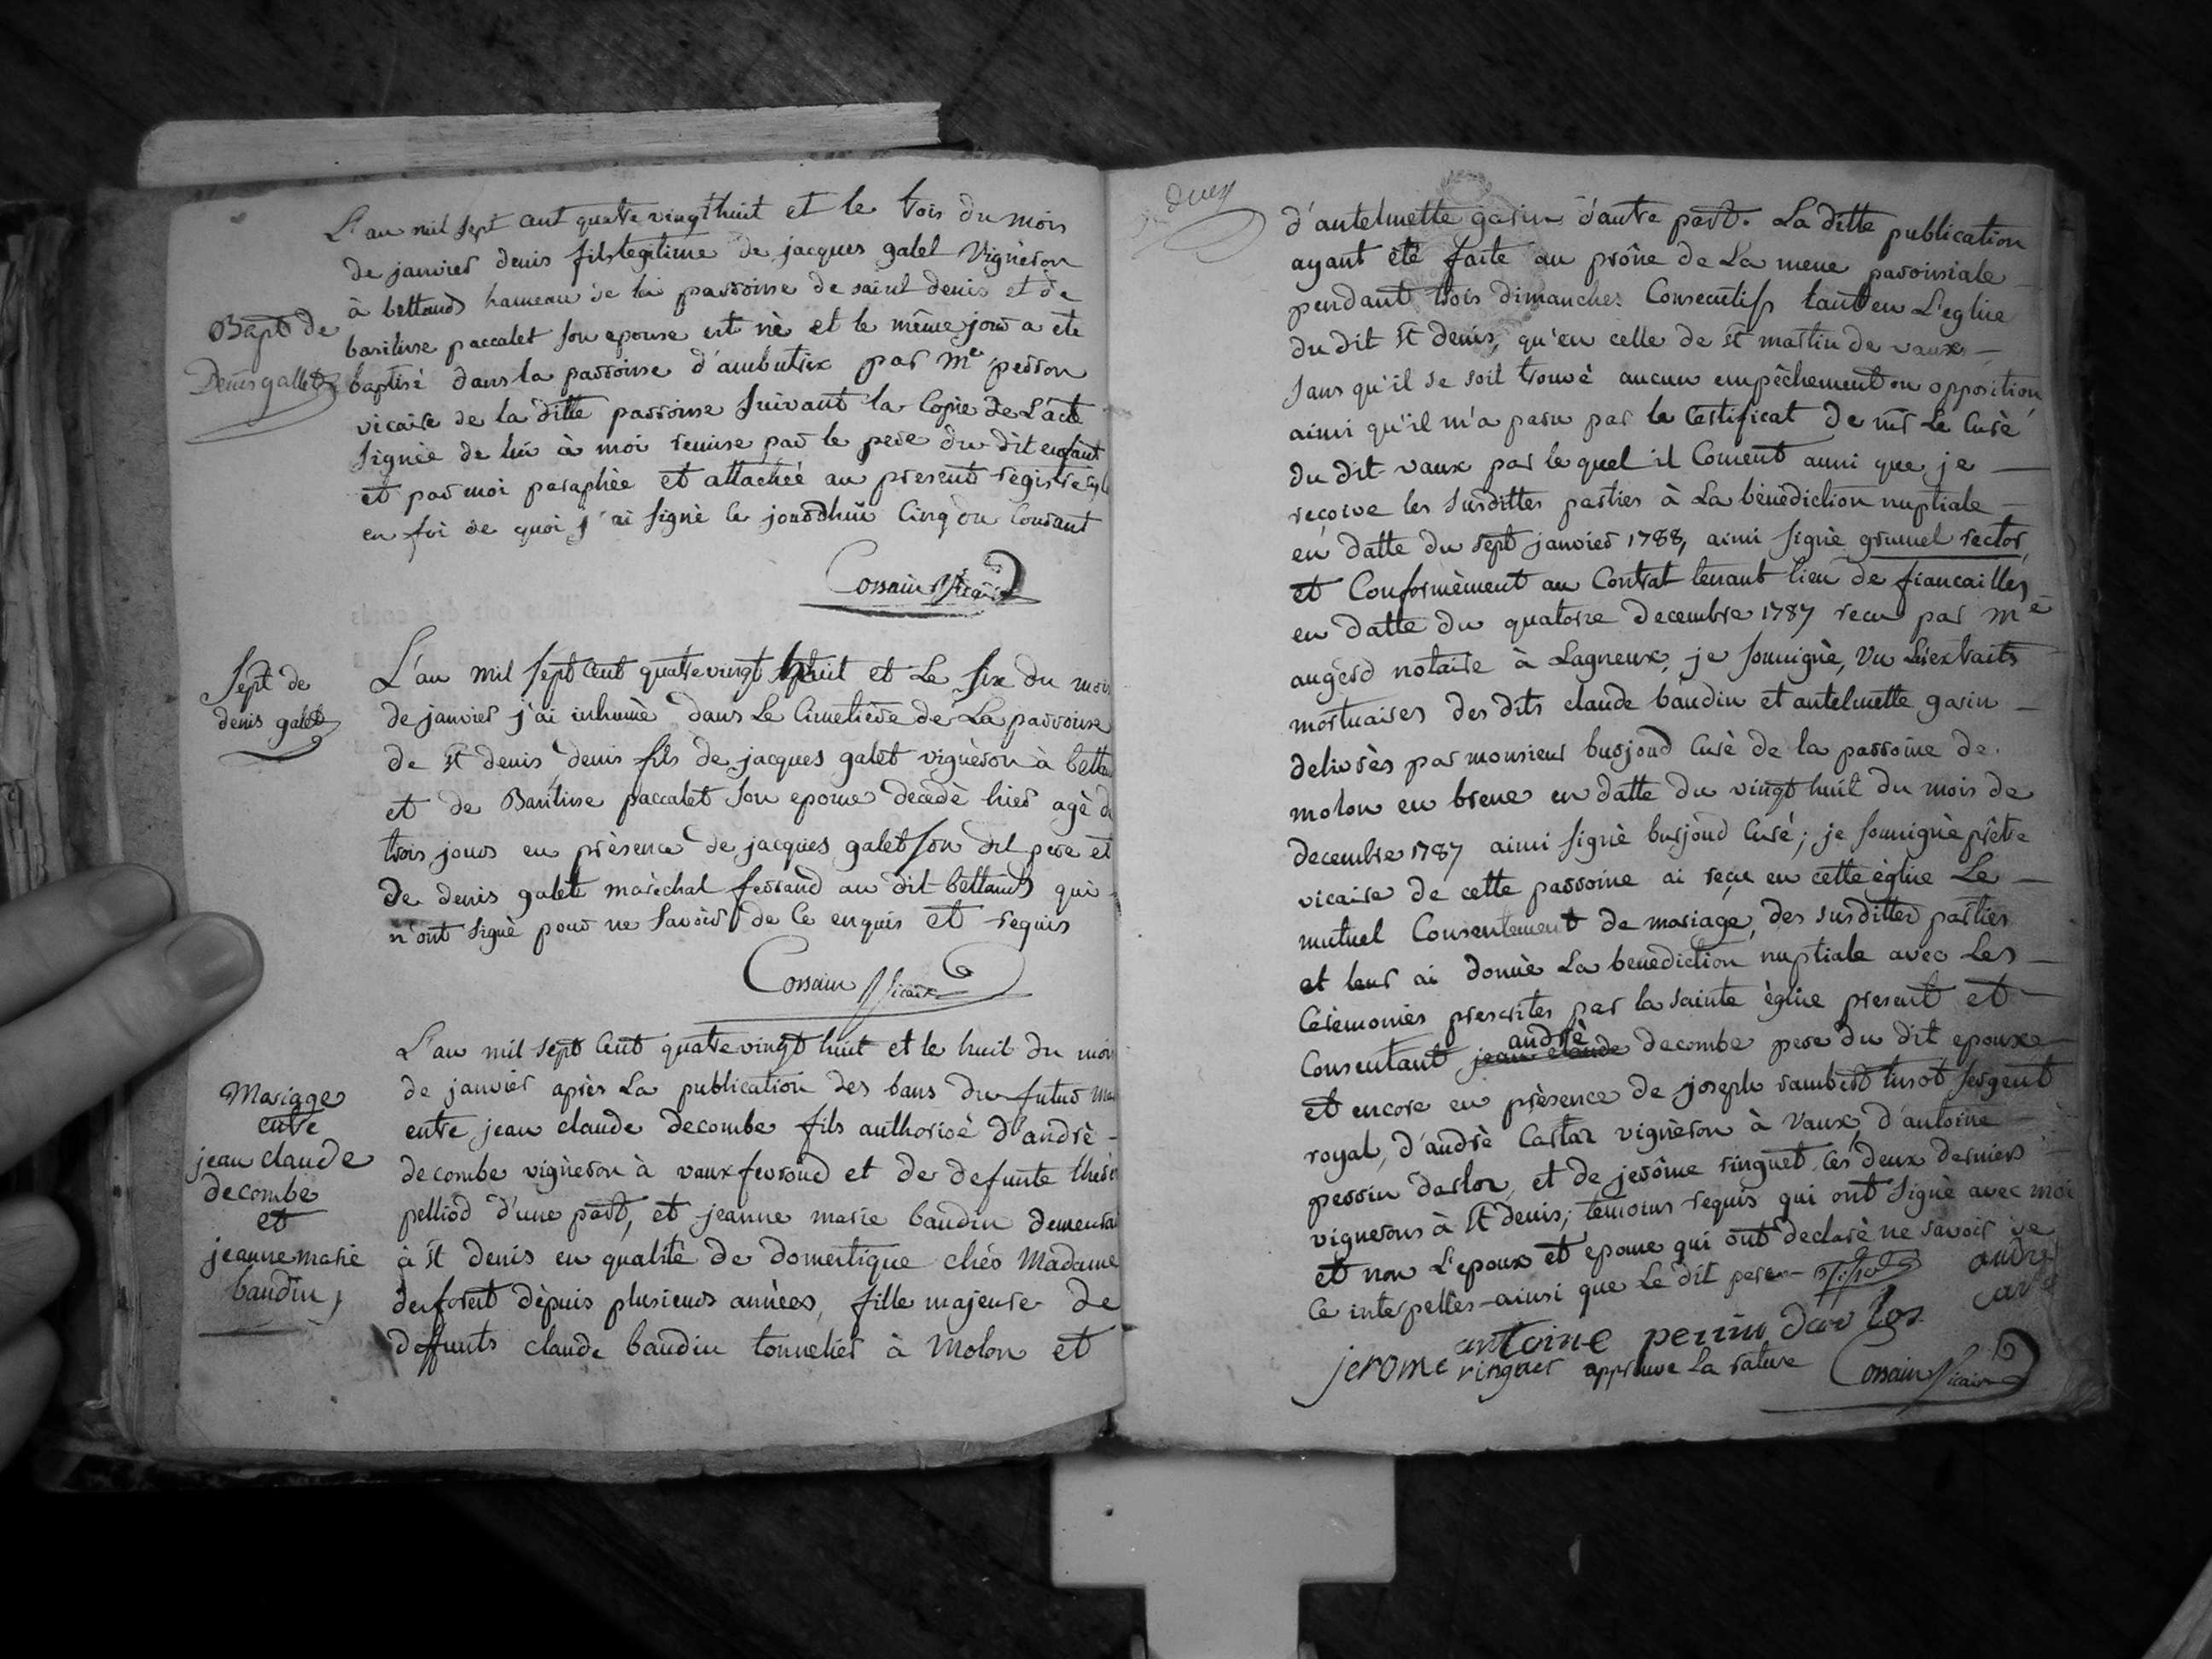 L'an mil sept cent quatre vingt huit et le trois du mois
de janvier denis fils legitime de jacques galet vignèron
à bettands hameau de la parroisse de saint denis et de
Bapt de
basilisse paccalet son epouse est né et le même jour a ete
Denis gallet
baptisé dans la parroisse d'ambutrix par Me perron
vicaire de la ditte parroisse suivant la Copie de L'acte
signée de lui à moi remise par le pere du dit enfant
et par moi paraphée et attachée au present registre
en foi de quoi j'ai signé le jourdhui cinq du courant
Cossain vicaire
Sept de
denis galet
L'an mil sept cent quatre vingt huit et Le six du mois
de janvier j'ai inhumè dans Le Cimetière de La parroisse
de st denis denis fils de jacques galet vignèron à betta
et de Basilisse paccalet son epouse decedè hier agè d
trois jours en prèsence de jacques galet son dit pere et
de denis galet marèchal ferrand au dit bettands qui
n'ont signè pour ne savoir de ce enquis et requis
Cossain vicaire
Mariage
entre
jean claude
decombe
et
jeanne marie
baudin
L'an mil sept cent quatre vingt huit et le huit du mois
de janvier après La publication des bans du futur ma
entre jean claude decombe fils authorisè d'andrè
decombe vignèron à vaux fevroud et de defunte therè
pelliod d'une part, et jeanne marie baudin demeura
à st denis en qualitè de domestique chés Madame
desforest dèpuis plusieurs annèes, fille majeure de
deffunts claude baudin tonnelier à Molon et
duex
d'antelmette garin d'autre part. La ditte publication
ayant étè faite au prône de La messe parroissiale
pendant trois dimanches Consecutifs tant en L'eglise
du dit st denis, qu'en celle de st martin de vaux
sans qu'il se soit trouvè aucun empêchement ou opposition
ainsi qu'il m'a paru par le Certificat de mr Le Curè
du dit vaux par le quel il Consent aussi que je
reçoive les susdittes parties à La bènèdiction nuptiale
en datte du sept janvier 1788, ainsi signè grumel rector,
et Conformèment au Contrat tenant lieu de fiancailles
en datte du quatorze decembre 1787 recu par Me
augerd notaire à Lagneux, je soussignè, Vu Les extraits
mortuaires des dits claude baudin et antelmette garin
delivrès par monsieur burjoud Curè de la parroisse de
molon en bresse en datte du vingt huit du mois de
decembre 1787 ainsi signè burjoud Curé; je soussignè prêtre
vicaire de cette parroisse ai reçu en cette èglise Le
mutuel Consentement de mariage, des susdittes parties
et leur ai donnè La benediction nuptiale avec Les
Cérèmonies prescrites par la sainte èglise present et
andrè
Consentant jean claude decombe pere du dit epoux
et encore en prèsence de joseph rambert tissot sergent
royal, d'andrè Cartaz vignèron à Vaux, d'antoine
perrin darloz, et de jerôme ringuet, ces deux derniers
vignerons à st denis, temoins requis qui ont signè avec moi
et non L'epoux et epouse qui ont declarè ne savoir de
Ce interpellès ainsi que Le dit pere
andre
antoine perrin darlos
jerome ringuet approuve La rature Cossain vicaire